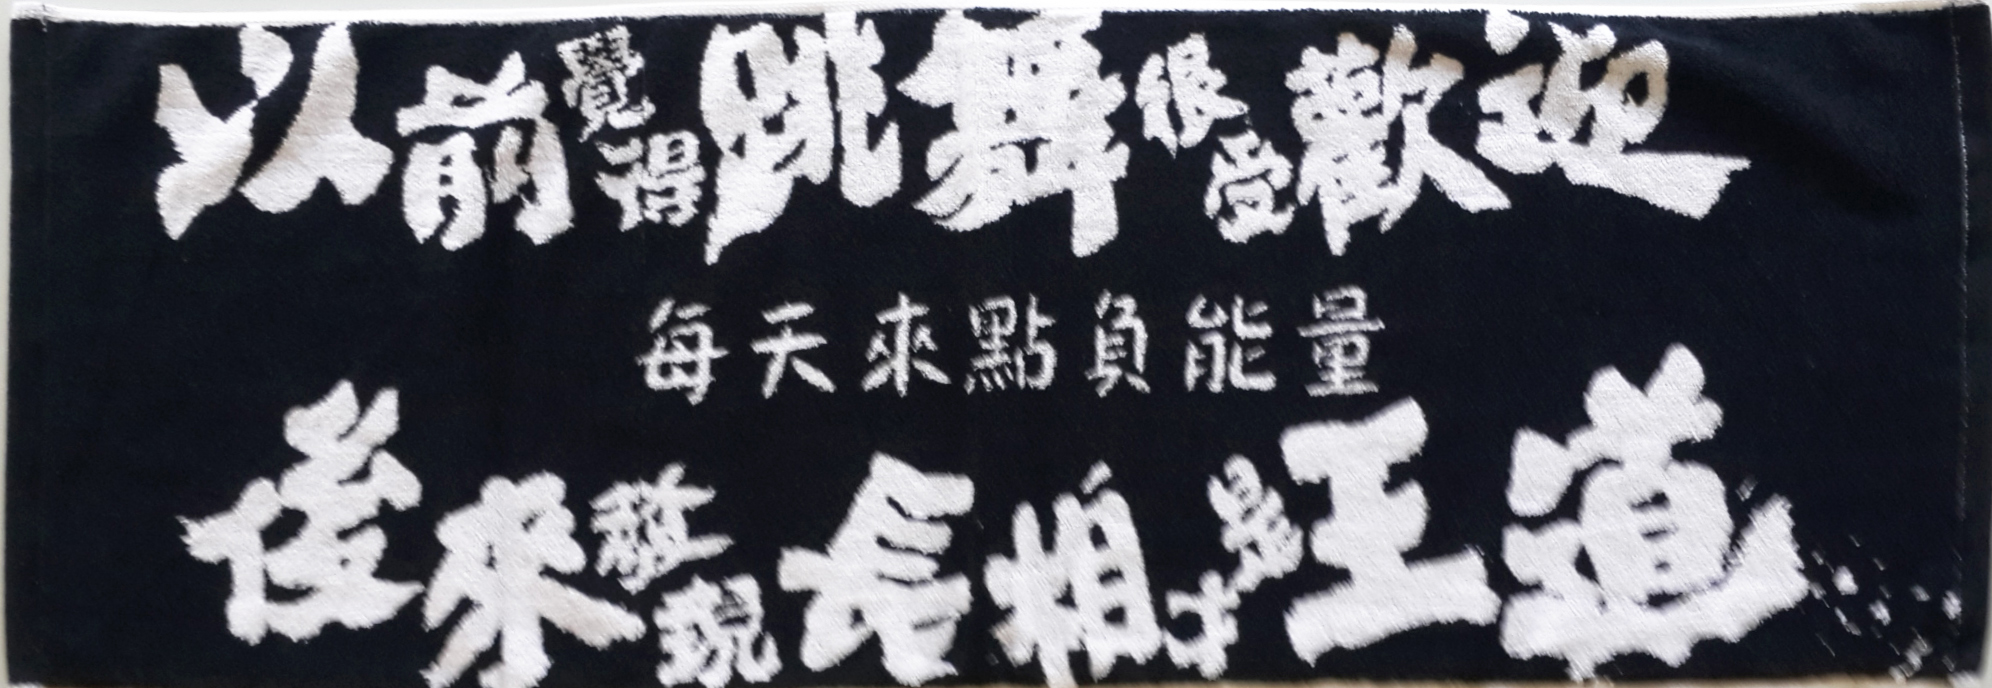 以前覺得跳舞很受歡迎
每天來點負能量
後來發現長相才是王道